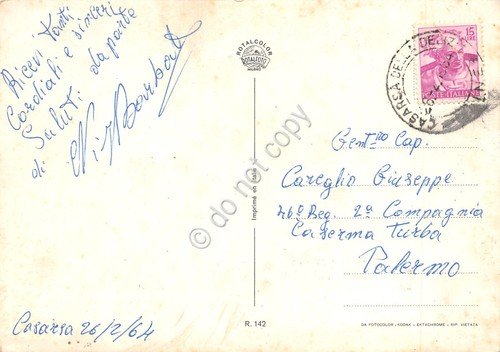 Ricevi Tanti
Cordiali e sinceri
Saluti da parte
di
ROTALCOLOR
ROTALFOTO
MILANO
Imprimé en Italie
do not copy
R. 142
Casarsa 26/2/64
CASARSA DELLA DELIZIA
15
LIRE
POSTE ITALIANE
Gent.mo Cap.
Careglio Giuseppe
46º Reg. 2ª Compagnia
Caserma Turba
Palermo
DA FOTOCOLOR - KODAK - EKTACHROME - RIP. VIETATA